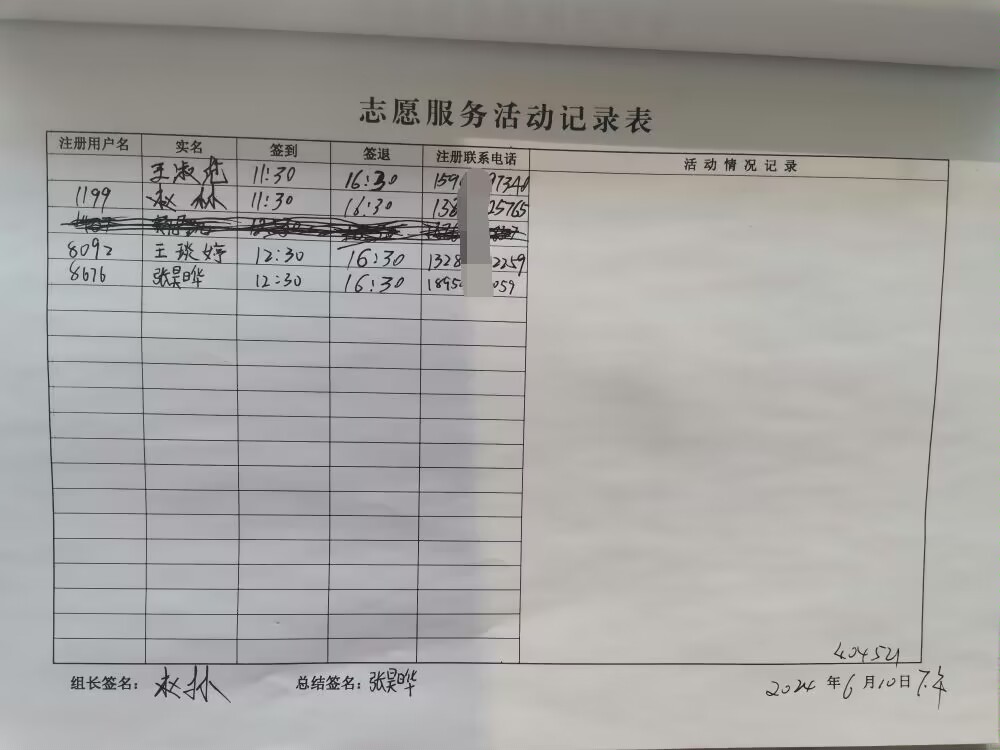 志愿服务活动记录表
注册用户名 实名 签到 签退 注册联系电话 活动情况记录
王淑 11:30 16:30 159 97340
1199 赵 11:30 16:30 138 25765
8092 王琰婷 12:30 16:30 1328 2259
8676 张昊晔 12:30 16:30 1895 059
404521
组长签名： 赵 总结签名：张昊晔 2024年6月10日下午